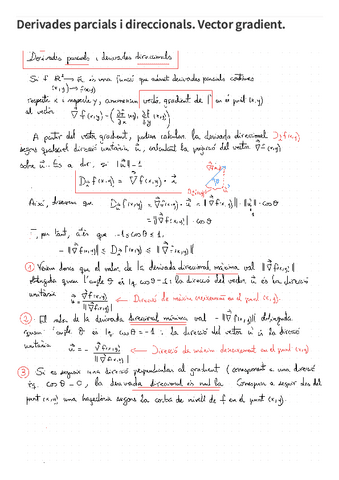 Derivades parcials i direccionals. Vector gradient.
Derivades parcials i derivades direccionals
Si f R² → R és una funció que admet derivades parcials contínues
(x,y) → f(x,y)
respecte x i respecte y, anomenem vector gradient de f en el punt (x,y)
al vector ∇f(x,y) = (∂f/∂x (x,y), ∂f/∂y (x,y))
A partir del vector gradient, podem calcular la derivada direccional D f(x,y)
segons qualsevol direcció unitària u, calculant la projecció del vector ∇f(x,y)
sobre u. És a dir, si ||u|| = 1
D f(x,y) = ∇f(x,y) · u
Així, observem que D f(x,y) = ∇f(x,y) · u = ||∇f(x,y)|| · ||u|| · cos θ
= ||∇f(x,y)|| · cos θ
I, per tant, atès que -1 ≤ cos θ ≤ 1,
- ||∇f(x,y)|| ≤ D f(x,y) ≤ ||∇f(x,y)||
① Veiem doncs que el valor de la derivada direccional màxima val ||∇f(x,y)||
obtinguda quan l'angle θ és tq cos θ = 1: la direcció del vector u és la direcció
unitària u = ∇f(x,y) / ||∇f(x,y)|| ← Direcció de màxim creixement en el punt (x,y).
② El valor de la derivada direccional mínima val - ||∇f(x,y)|| obtinguda
quan l'angle θ és tq cos θ = -1: la direcció del vector u és la direcció
unitària u = - ∇f(x,y) / ||∇f(x,y)|| ← Direcció de màxim decreixement en el punt (x,y)
③ Si es segueix una direcció perpendicular al gradient (corresponent a una direcció
tq. cos θ = 0, la derivada direccional és nul·la. Correspon a seguir des del
punt (x,y) una trajectòria segons la corba de nivell de f en el punt (x,y).